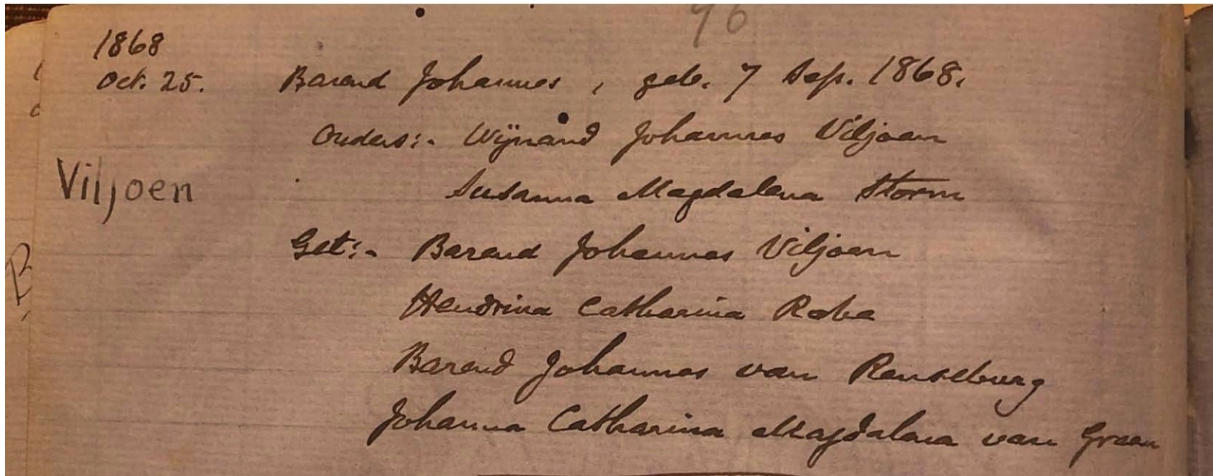 96
1868
Oct. 25. Barend Johannes, geb. 7 Sep. 1868.
Ouders:- Wÿnand Johannes Viljoen
Viljoen
Susanna Magdalena Storm
Get:- Barend Johannes Viljoen
Hendrina Catharina Rabe
Barend Johannes van Renseburg
Johanna Catharina Magdalena van Graan